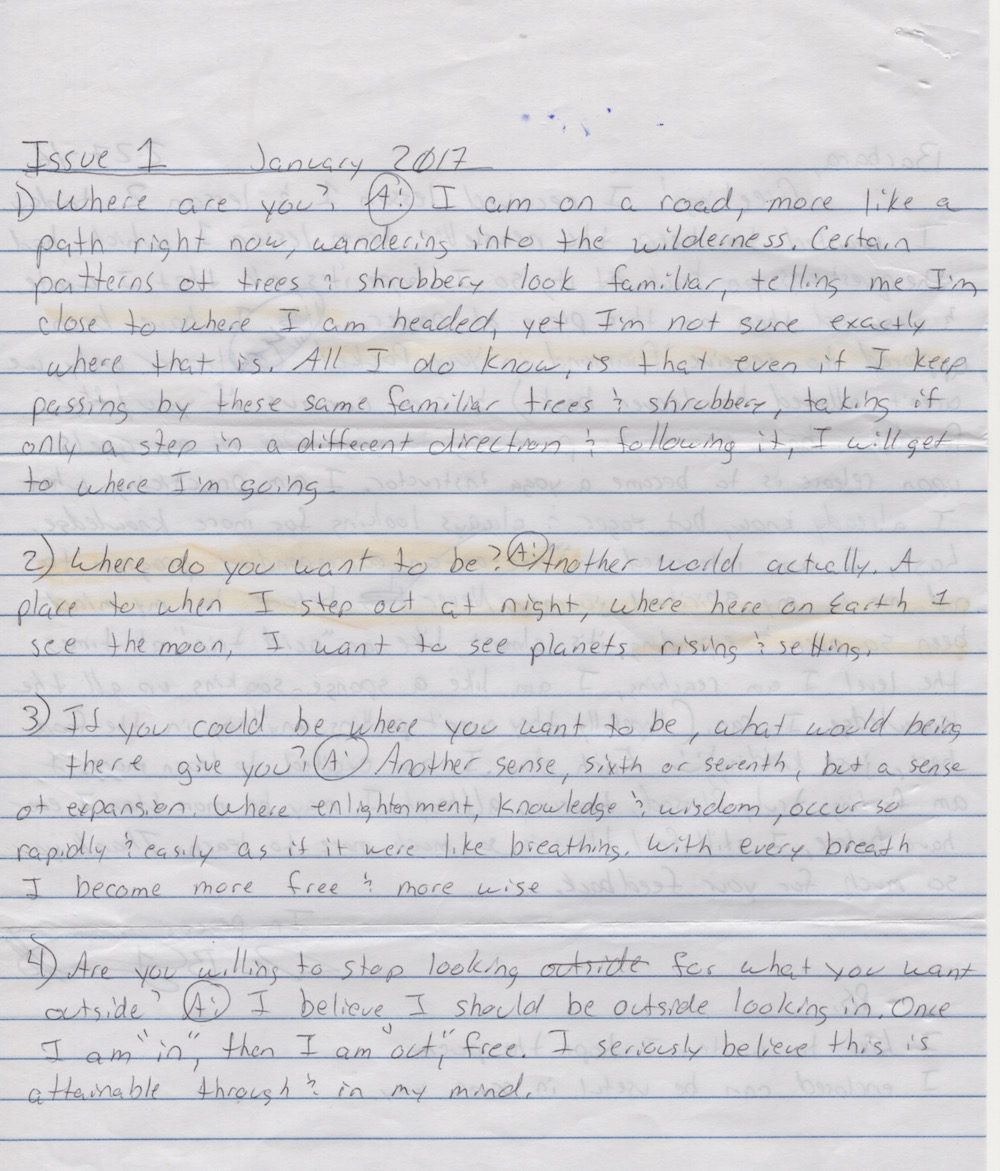 Issue 1 January 2017
1) Where are you? A: I am on a road, more like a
path right now, wandering into the wilderness. Certain
patterns of trees & shrubbery look familiar, telling me I'm
close to where I am headed, yet I'm not sure exactly
where that is. All I do know, is that even if I keep
passing by these same familiar trees & shrubbery, taking if
only a step in a different direction & following it, I will get
to where I'm going.
2) Where do you want to be? A: Another world actually. A
place to when I step out at night, where here on Earth I
see the moon, I want to see planets rising & setting.
3) If you could be where you want to be, what would being
there give you? A: Another sense, sixth or seventh, but a sense
of expansion. Where enlightenment, knowledge & wisdom, occur so
rapidly & easily as if it were like breathing. With every breath
I become more free & more wise.
4) Are you willing to stop looking outside for what you want
outside? A: I believe I should be outside looking in. Once
I am "in", then I am "out," free. I seriously believe this is
attainable through & in my mind.